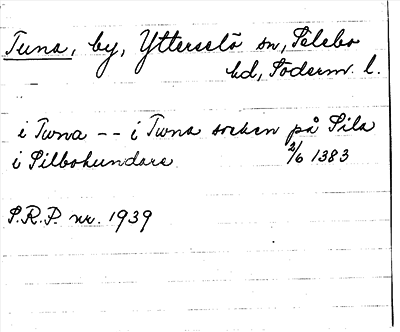 Tuna, by, Ytterselö sn, Selebo
hd, Söderm. l.
i Twna -- i Twna socken på Sila
i Silbohundare 2/6 1383
S.R.P. nr. 1939